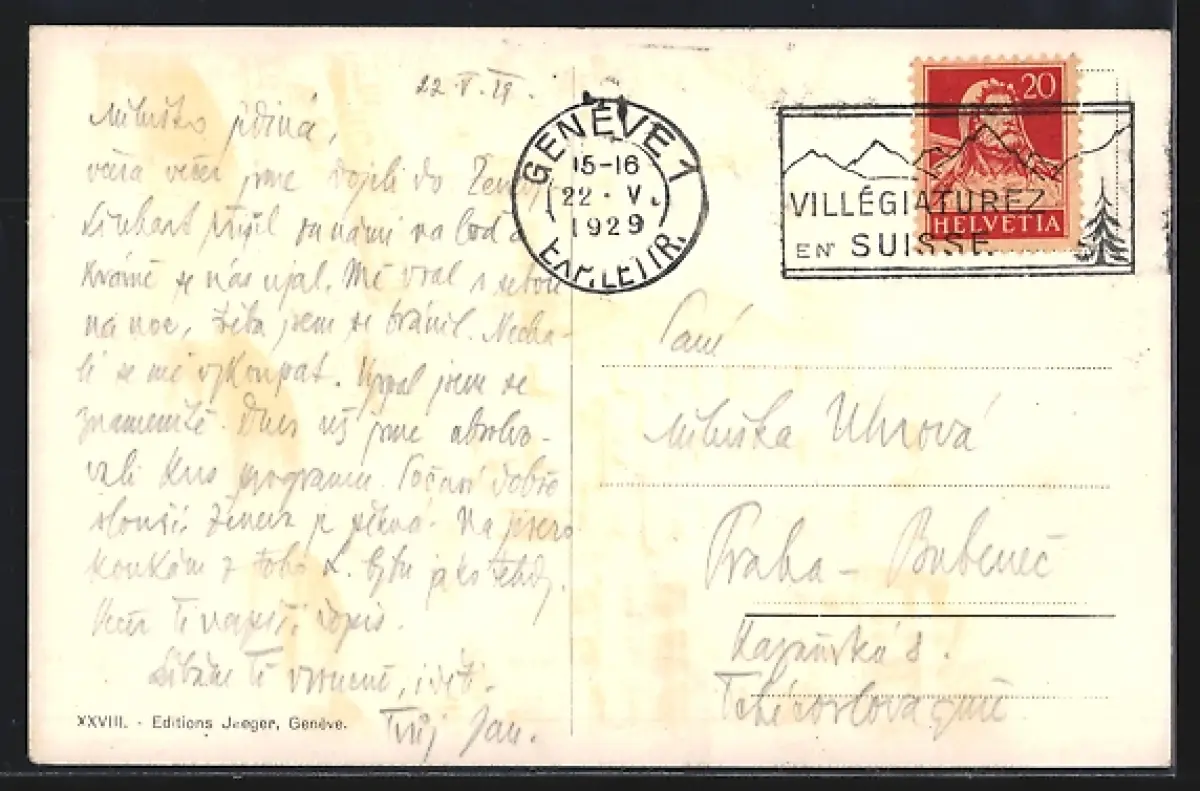 22. V. 29.
Miluško jediná,
včera večer jsme dojeli do Ženevy
přišel za námi na loď a
se nás ujal. Mě vzal s sebou
na noc, třeba jsem se bránil. Necha-
li se mě vykoupat. Vyspal jsem se
znamenitě. Dnes už jsme absolvo-
vali kus programu. Počasí dobře
slouží. Ženeva je pěkná. Na jezero
koukám z toho bytu jako tehdy.
Večer Ti napíši dopis.
Líbám Tě vroucně, i děti.
Tvůj Jan.
XXVIII. - Editions Jaeger, Genève.
GENÈVE 1
15-16
22. V.
1929
EXP. LETTR.
20
HELVETIA
VILLÉGIATUREZ
EN SUISSE.
Paní
Miluška Uhrová
Praha - Bubeneč
8.
Tchécoslovaquie